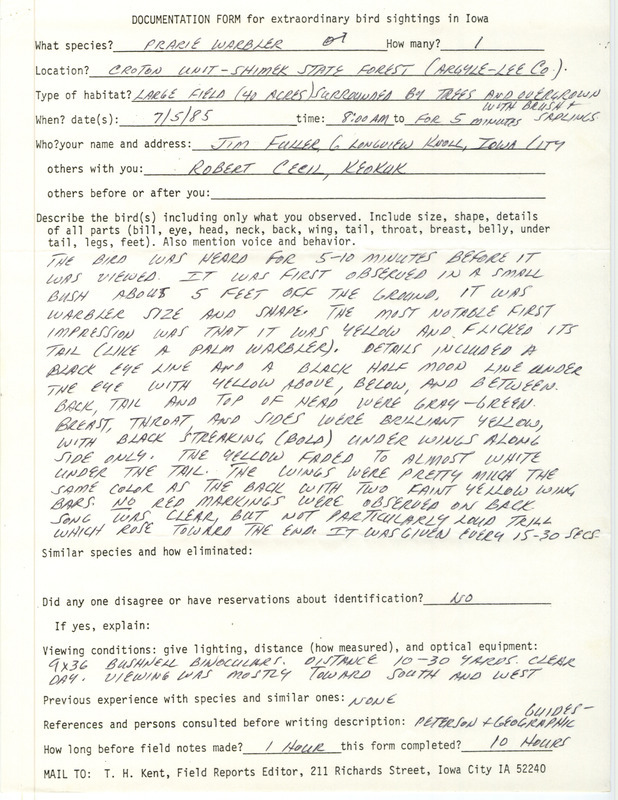 DOCUMENTATION FORM for extraordinary bird sightings in Iowa
What species? PRARIE WARBLER ♂ How many? 1
Location? CROTON UNIT-SHIMEK STATE FOREST (ARGYLE-LEE CO).
Type of habitat? LARGE FIELD (40 ACRES) SURROUNDED BY TREES AND OVERGROWN
WITH BRUSH +
When? date(s): 7/5/85 time: 8:00 AM to FOR 5 MINUTES SAPLINGS
Who?your name and address: JIM FULLER, 6 LONGVIEW KNOLL, IOWA CITY
others with you: ROBERT CECIL, KEOKUK
others before or after you:
Describe the bird(s) including only what you observed. Include size, shape, details
of all parts (bill, eye, head, neck, back, wing, tail, throat, breast, belly, under
tail, legs, feet). Also mention voice and behavior.
THE BIRD WAS HEARD FOR 5-10 MINUTES BEFORE IT
WAS VIEWED. IT WAS FIRST OBSERVED IN A SMALL
BUSH ABOUT 5 FEET OFF THE GROUND. IT WAS
WARBLER SIZE AND SHAPE. THE MOST NOTABLE FIRST
IMPRESSION WAS THAT IT WAS YELLOW AND FLICKED ITS
TAIL (LIKE A PALM WARBLER). DETAILS INCLUDED A
BLACK EYE LINE AND A BLACK HALF MOON LINE UNDER
THE EYE WITH YELLOW ABOVE, BELOW, AND BETWEEN.
BACK, TAIL AND TOP OF HEAD WERE GRAY-GREEN.
BREAST, THROAT, AND SIDES WERE BRILLIANT YELLOW,
WITH BLACK STREAKING (BOLD) UNDER WINGS ALONG
SIDE ONLY. THE YELLOW FADED TO ALMOST WHITE
UNDER THE TAIL. THE WINGS WERE PRETTY MUCH THE
SAME COLOR AS THE BACK WITH TWO FAINT YELLOW WING
BARS. NO RED MARKINGS WERE OBSERVED ON BACK
SONG WAS CLEAR, BUT NOT PARTICULARLY LOUD TRILL
WHICH ROSE TOWARD THE END. IT WAS GIVEN EVERY 15-30 SECS.
Similar species and how eliminated:
Did any one disagree or have reservations about identification? NO
If yes, explain:
Viewing conditions: give lighting, distance (how measured), and optical equipment:
9X36 BUSHNELL BINOCULARS. DISTANCE 10-30 YARDS. CLEAR
DAY. VIEWING WAS MOSTLY TOWARD SOUTH AND WEST
Previous experience with species and similar ones: NONE
GUIDES-
References and persons consulted before writing description: PETERSON + GEOGRAPHIC
How long before field notes made? 1 HOUR this form completed? 10 HOURS
MAIL TO: T. H. Kent, Field Reports Editor, 211 Richards Street, Iowa City IA 52240